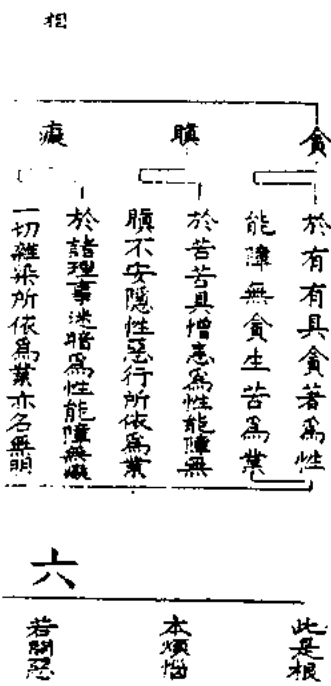 相
貪
於有有具貪著為性
能障無貪生苦為業
瞋
於苦苦具憎恚為性能障無
瞋不安隱性惡行所依為業
癡
於諸理事迷暗為性能障無癡
一切雜染所依為業亦名無明
六
此是根
本煩惱
若開惡